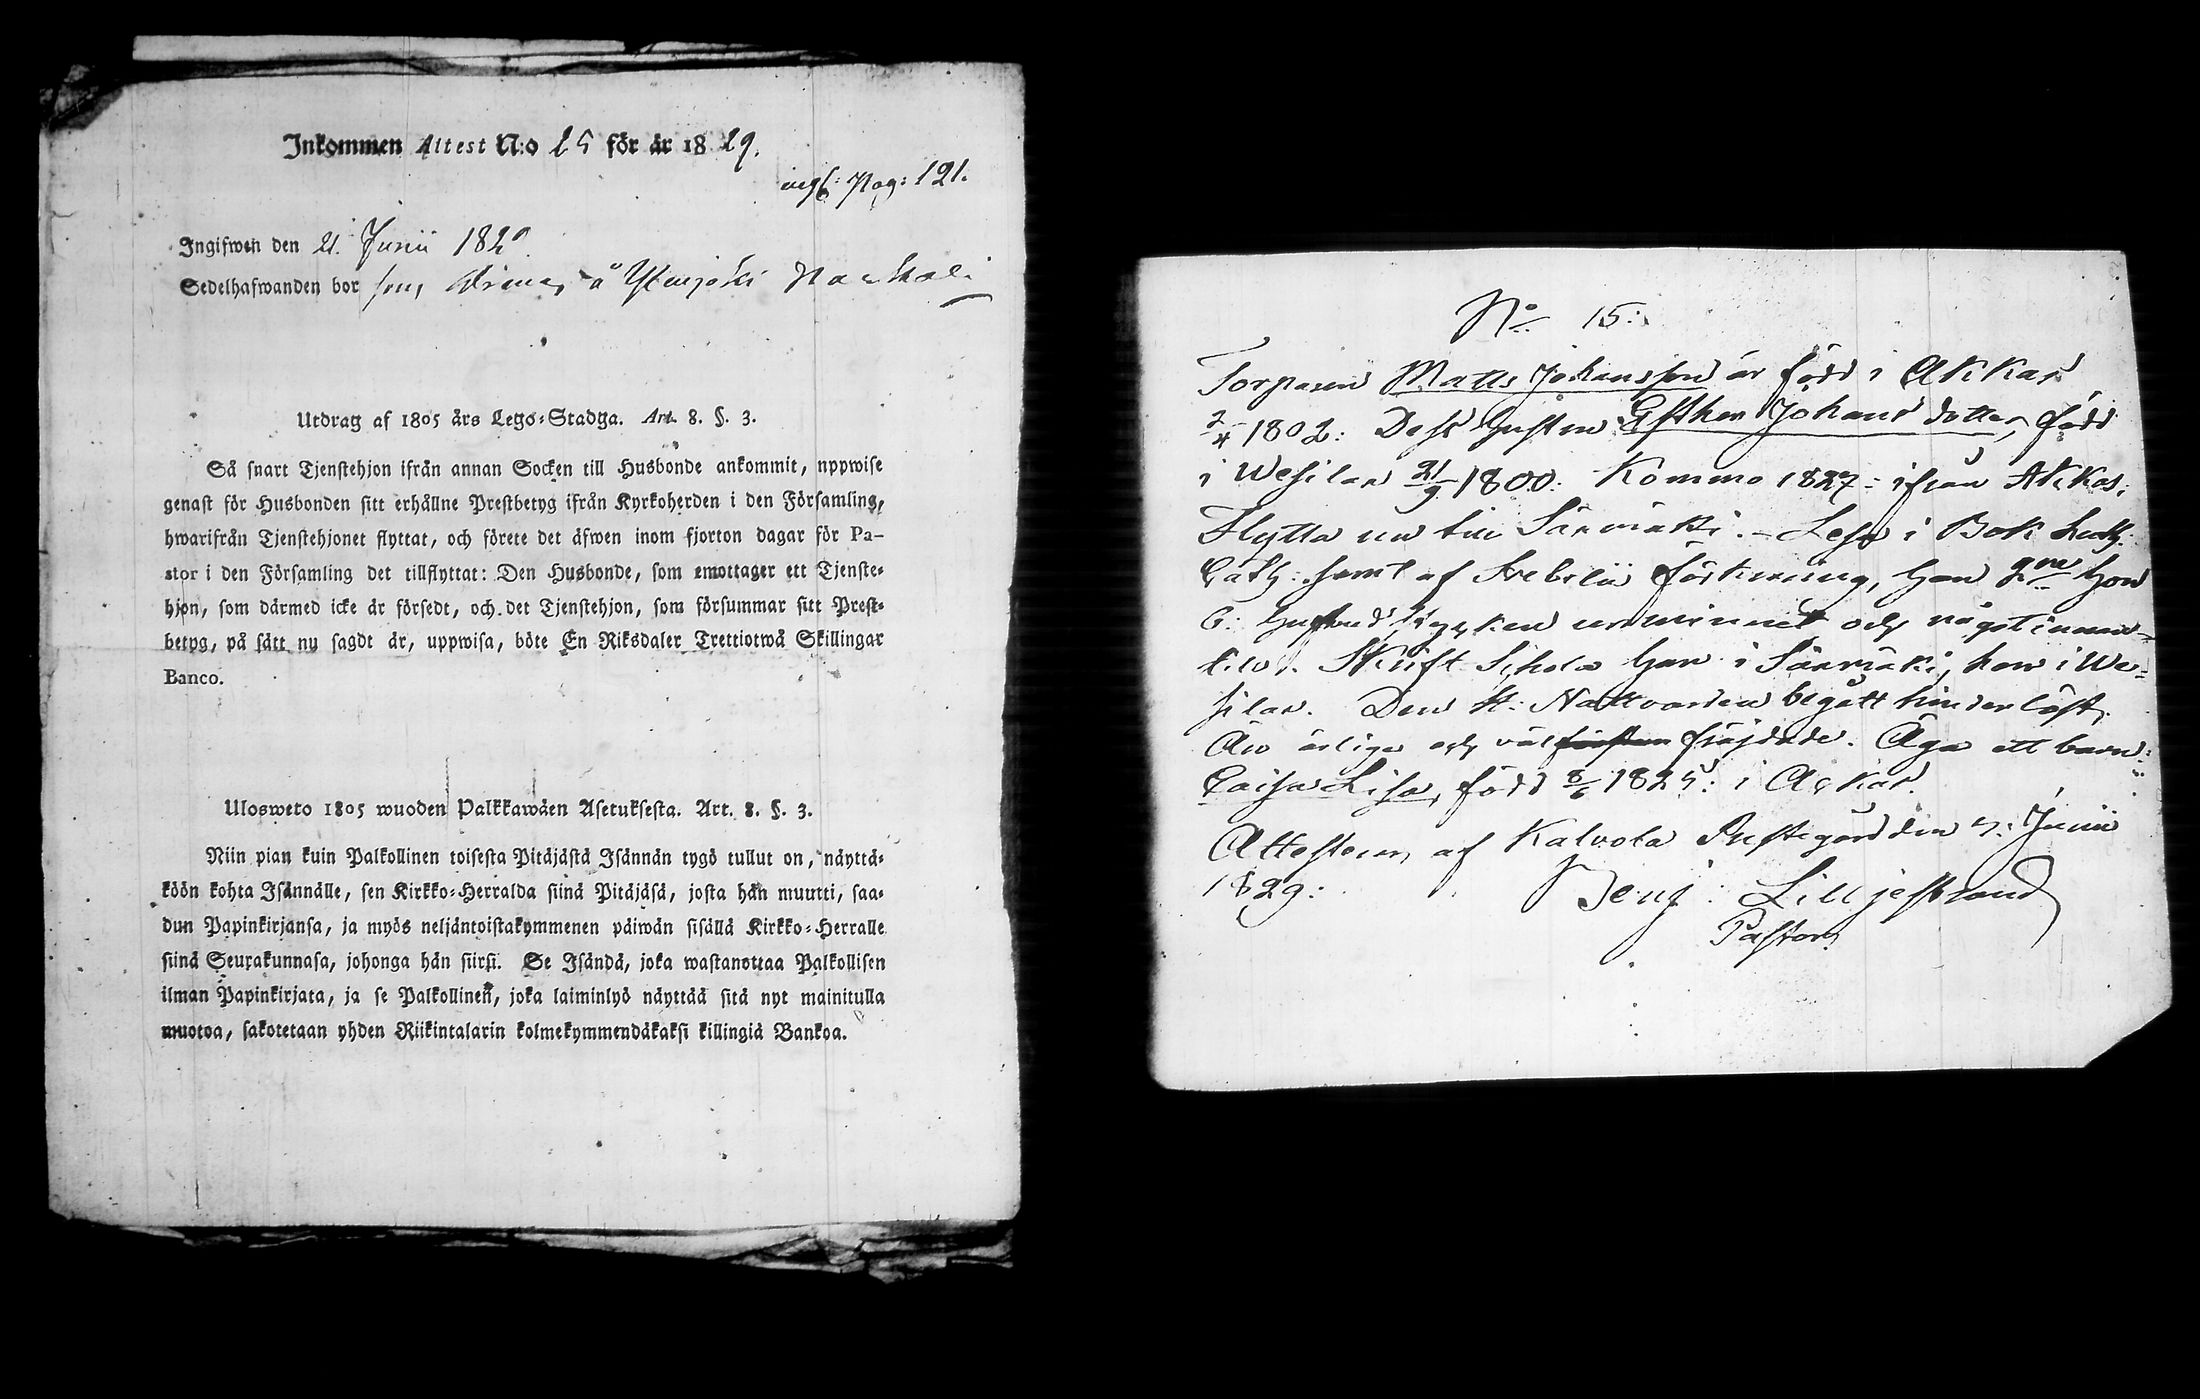 Inkommen Attest N:o 25 för år 1829.
Pag: 121.
Ingifwen den 21. Junii 182
Sedelhafwanden bor som å
Utdrag af 1805 års Lego-Stadga. Art. 8. §. 3.
Så snart Tjenstehjon ifrån annan Socken till Husbonde ankommit, uppwise
genast för Husbonden sitt erhållne Prestbetyg ifrån Kyrkoherden i den Församling,
hwarifrån Tjenstehjonet flyttat, och förete det äfwen inom fjorton dagar för Pa-
stor i den Församling det tillflyttat: Den Husbonde, som emottager ett Tjenste-
hjon, som därmed icke är försedt, och det Tjenstehjon, som försummar sitt Prest-
betyg, på sätt nu sagdt är, uppwisa, böte En Riksdaler Trettiotwå Skillingar
Banco.
Ulosweto 1805 wuoden Palkkawäen Asetuksesta. Art. 8. §. 3.
Niin pian kuin Palkollinen toisesta Pitäjästä Isännän tygö tullut on, näyttä-
köön kohta Isännälle, sen Kirkko-Herralda siinä Pitäjäsä, josta hän muutti, saa-
dun Papinkirjansa, ja myös neljäntoistakymmenen päiwän sisällä Kirkko-Herralle
siinä Seurakunnasa, johonga hän siirsi. Se Isändä, joka wastanottaa Palkollisen
ilman Papinkirjata, ja se Palkollinen, joka laiminlyö näyttää sitä nyt mainitulla
muotoa, sakotetaan yhden Riikintalarin kolmekymmendäkaksi killingiä Bankoa.
No 15:
Torparen Matts Johansson är född i Akkas
2/4 1802: Dess hustru Esther Johans dotter, född
i Wesilax 21/9 1800: Kommo 1827: ifrån Akkas;
Flytta nu till Särmäki. - Läsa i Bok Luth:
Cath: samt af Svebelii förklaring, han 2ne hon
6: hustrud Stycken ur minnet och något innan-
till. Skrift Schola han i Särmäki, hon i We-
silax. Den H: Nattvarden begått hinderlöst.
Äro ärlige och väl fräjdade. Äga ett barn:
Caisa Lisa, född 8/6 1825: i Ackas.
Attesteras af Kalvola Prestegård den 5: Junii
1829: Benj: Lilljestrand
Pastor.